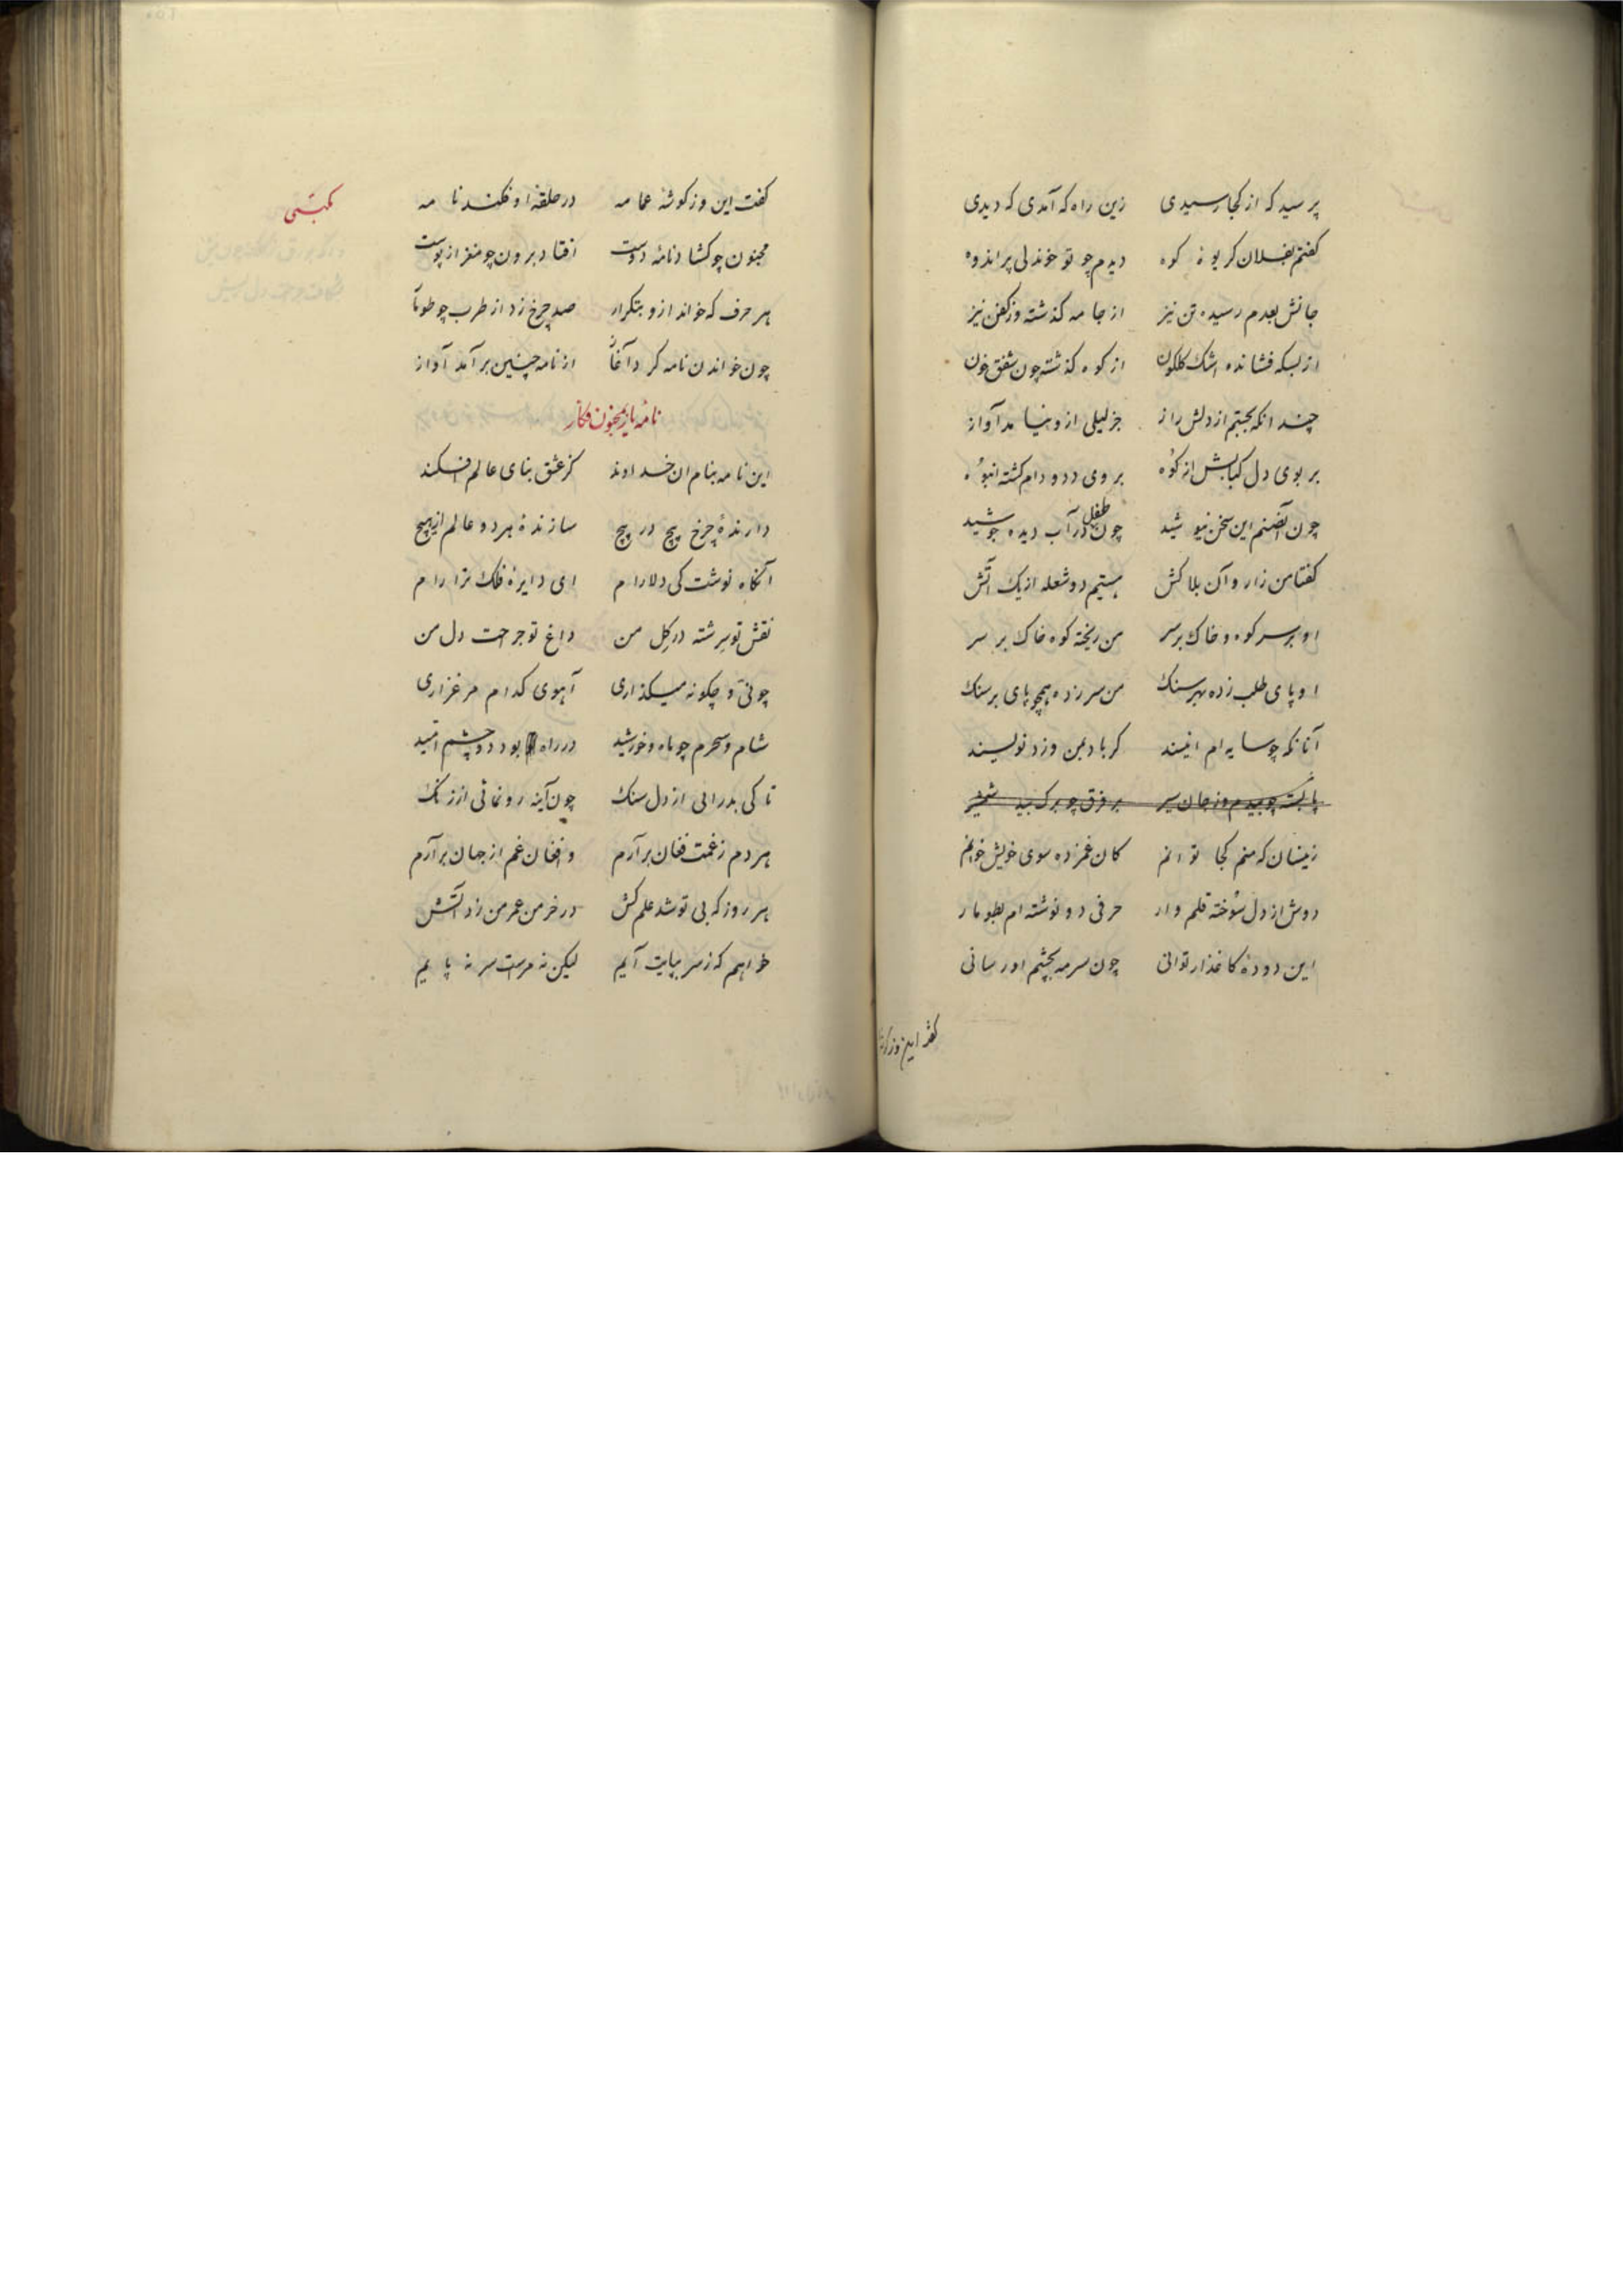 پرسید که از کجا رسیدی زین راه که آمدی که دیدی
کفتم بفلان کریوهٔ کوه دیدم چو تو خوندلی پراندوه
جانش بعدم رسیده تن نیز از جامه کذشته وز کفن نیز
از بسکه فشانده اشک کلکون از کوه کذشته چون شفق خون
چندانکه بجستم از دلش راز جز لیلی ازو نیامد آواز
بر بوی دل کبابش از کوه بروی دد و دام کشته انبوه
چون آن صنم این سخن نیوشید چون طفل در آب دیده جوشید
کفتا من زار و آن بلاکش هستیم دو شعله از یک آتش
او بر سر کوه و خاک بر سر من ریخته کوه خاک بر سر
او پای طلب زده بهر سنک من سر زده همچو پای بر سنک
آنانکه چو سایه ام انیسند کر باد بمن وزد نویسند
پا بسته چو بیدم وز جان سیر بر فرق چو برک بید شمشیر
زینسان که منم کجا توانم کان غمزده سوی خویش خوانم
دوش از دل سوخته قلم وار حرفی دو نوشته ام بطومار
این دودهٔ کاغذ ار توانی چون سرمه بچشم او رسانی
کفت این وز کوشهٔ
کفت این وز کوشهٔ عمامه در حلقهٔ او فکند نامه
مکتبی
مجنون چو کشاد نامهٔ دوست افتاد برون چو مغز از پوست
هر حرف که خواند ازو بتکرار صد چرخ زد از طرب چو طومار
چون خواندن نامه کرد آغاز از نامه چنین برآمد آواز
نامهٔ یار بمجنون فکار
این نامه بنام ان خداوند کز عشق بنای عالم افکند
دارندهٔ چرخ پیچ در پیچ سازندهٔ هر دو عالم از هیچ
آنکاه نوشت کی دلارام ای دایرهٔ فلک ترا رام
نقش تو سرشته در کل من داغ تو جراحت دل من
چونی و چکونه میکذاری آهوی کدام مرغزاری
شام و سحرم چو ماه و خورشید در راه بود دو چشم امید
تا کی بدرائی از دل سنک چون آینه رو نمائی از زنک
هر دم ز غمت فغان برآرم و افغان غم از جهان برآرم
هر روز که بی تو شد علم کش در خرمن عمر من زد آتش
خواهم که ز سر بپایت آیم لیکن نه سرست مر نه پایم